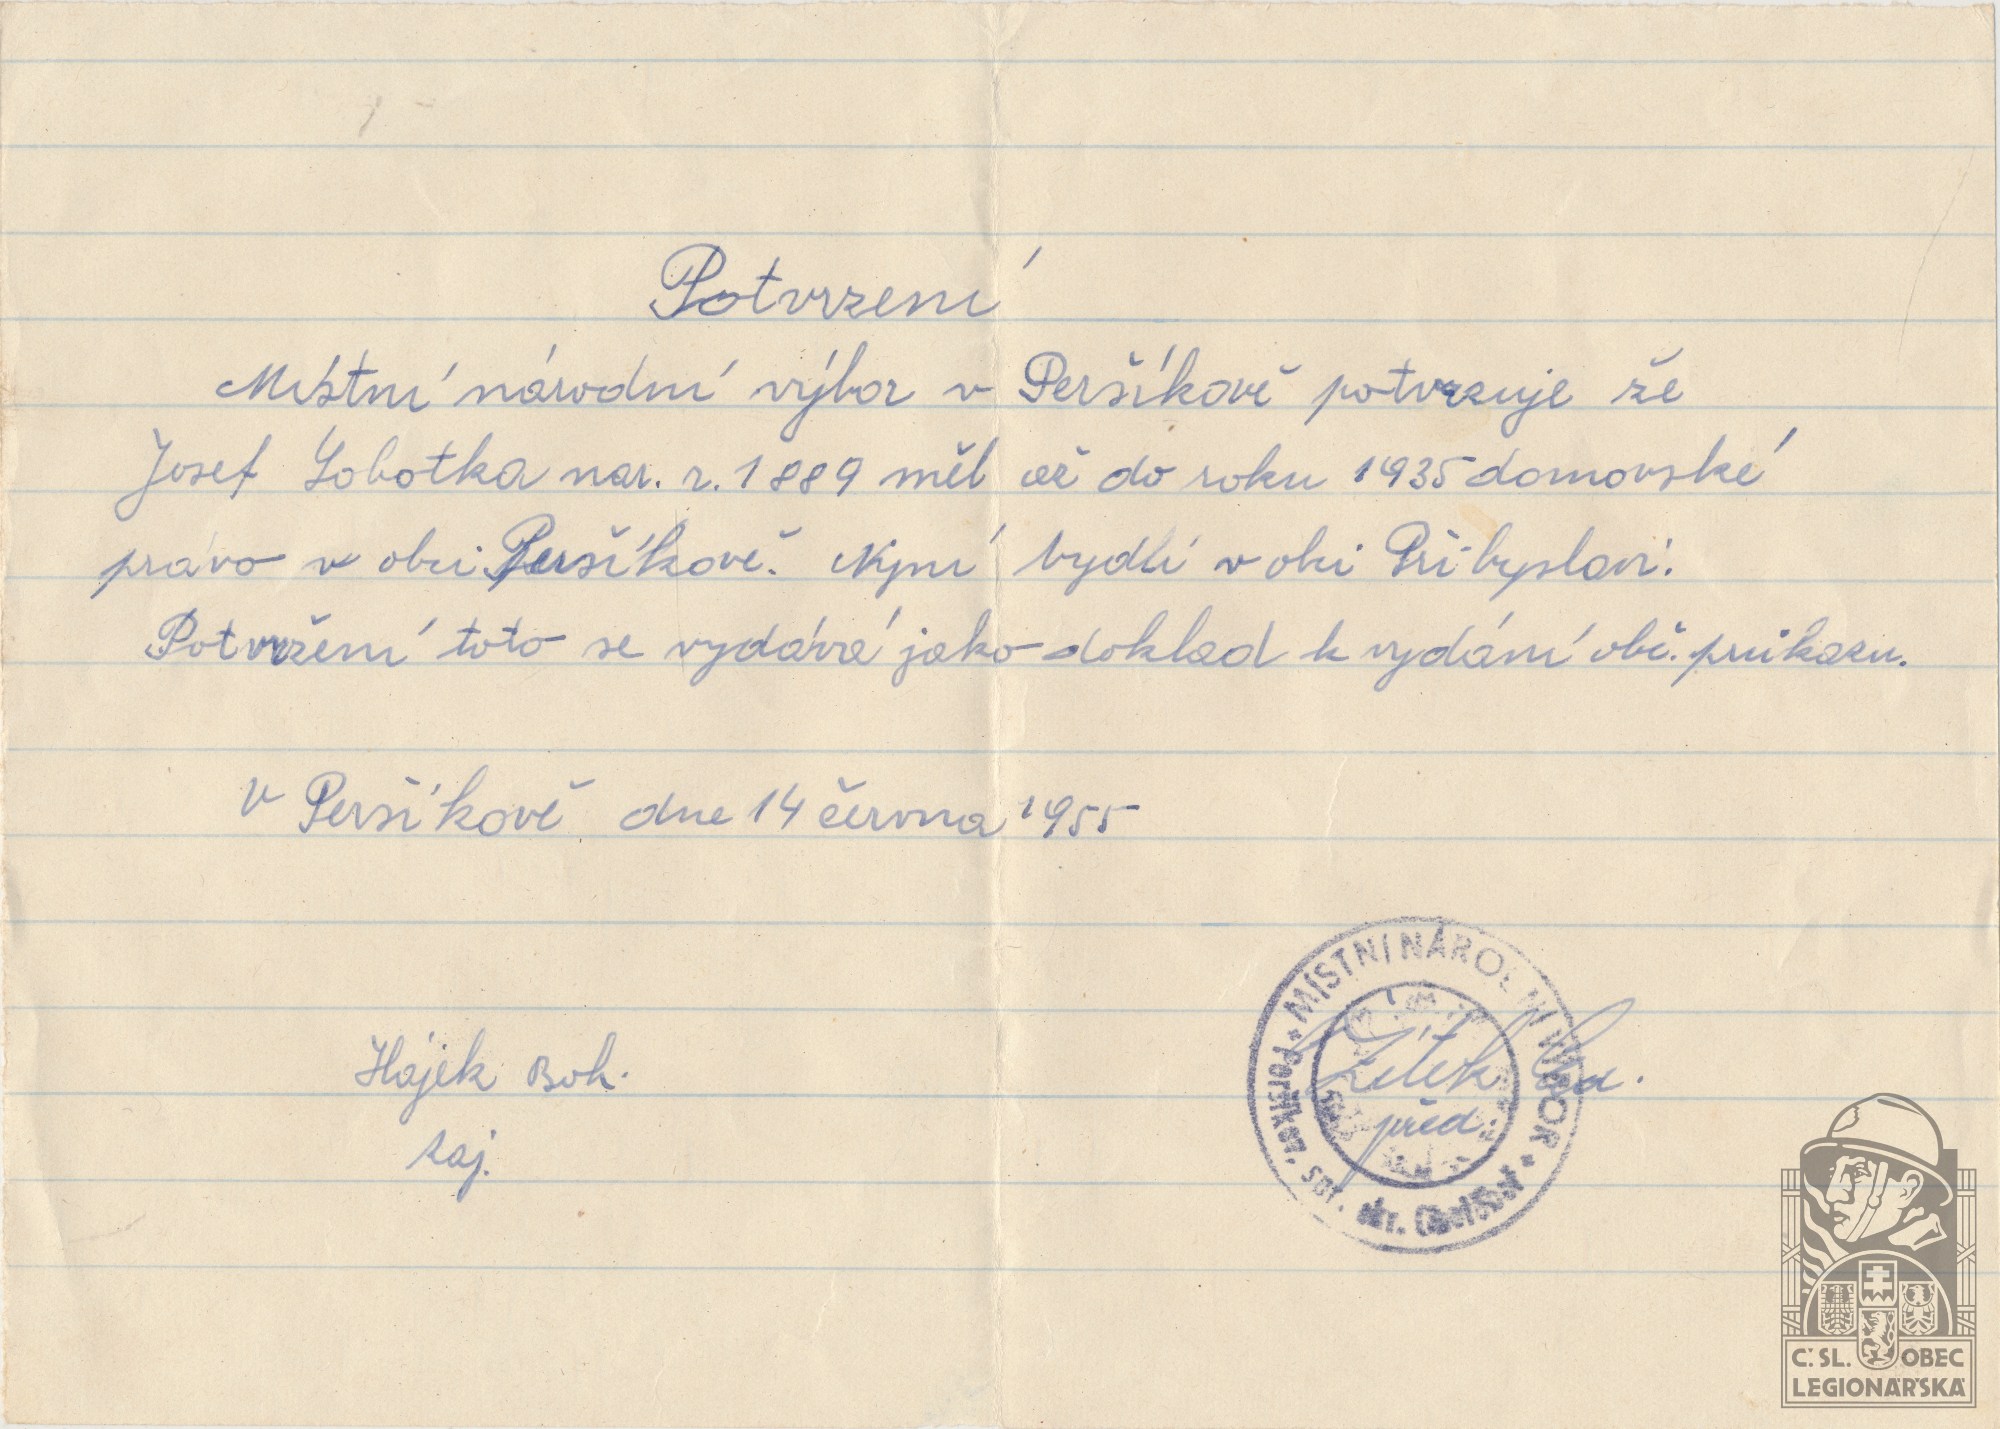 Potvrzení
Místní národní výbor v Peršíkově potvrzuje že
Josef Sobotka nar. r. 1889 měl až do roku 1935 domovské
právo v obci Peršíkově. Nyní bydlí v obci Přibyslavi.
Potvržení toto se vydává jako doklad k vydání obč. průkazu.
V Peršíkově dne 14 června 1955
MÍSTNÍ NÁRODNÍ VÝBOR
Hájek Boh.
Žítek
taj.
před.
Č. SL. OBEC
LEGIONÁŘSKÁ